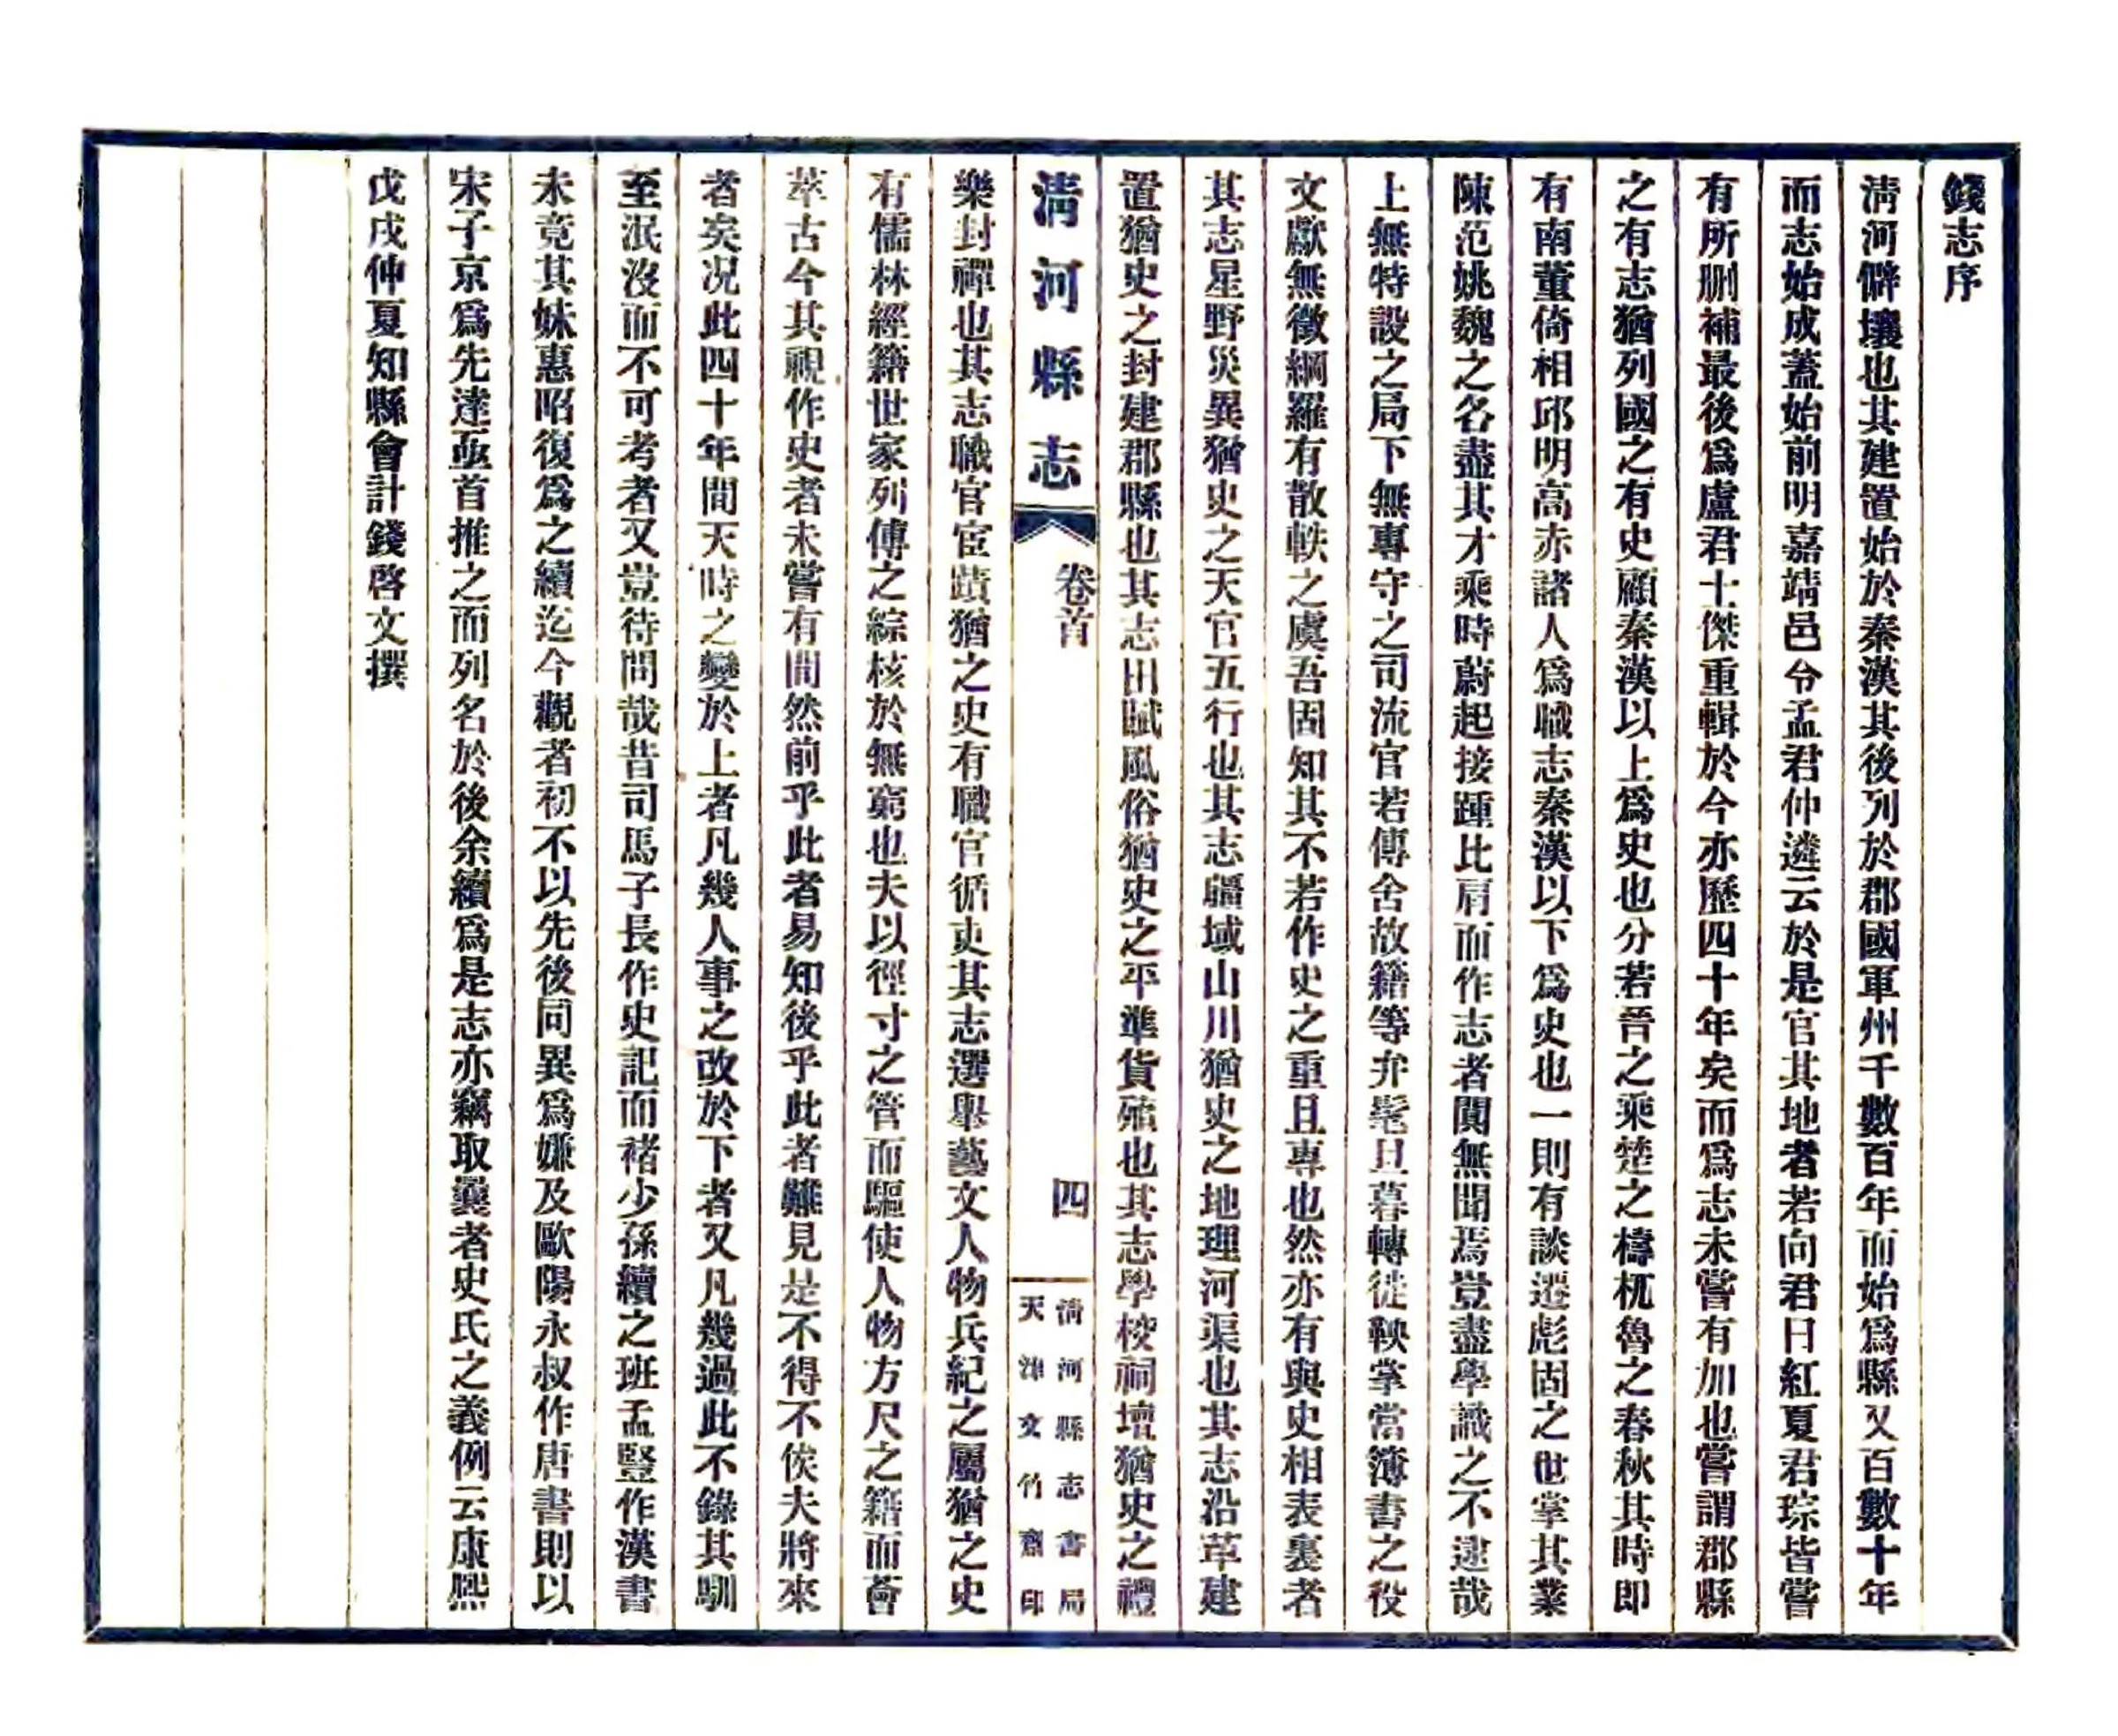 錢志序
淸河僻壤也其建置始於秦漢其後列於郡國軍州千數百年而始爲縣又百數十年
而志始成蓋始前明嘉靖邑令孟君仲遴云於是官其地者若向君日紅夏君琮皆嘗
有所删補最後爲盧君士傑重輯於今亦歷四十年矣而爲志未嘗有加也嘗謂郡縣
之有志猶列國之有史顧秦漢以上爲史也分若晉之乘楚之檮杌魯之春秋其時即
有南董倚相邱明高赤諸人爲職志秦漢以下爲史也一則有談遷彪固之世掌其業
陳范姚魏之名盡其才乘時蔚起接踵比肩而作志者闃無聞焉豈盡學識之不逮哉
上無特設之局下無專守之司流官若傳舍故籍等弁髦旦暮轉徙鞅掌當簿書之役
文獻無徵綱羅有散軼之虞吾固知其不若作史之重且專也然亦有與史相表裏者
其志星野災異猶史之天官五行也其志疆域山川猶史之地理河渠也其志沿革建
置猶史之封建郡縣也其志田賦風俗猶史之平準貨殖也其志學校祠壇猶史之禮
淸河縣志
卷首
四
淸河縣志書局
天津文竹齋印
樂封禪也其志職官宦蹟猶之史有職官循吏其志選舉藝文人物兵紀之屬猶之史
有儒林經籍世家列傳之綜核於無窮也夫以徑寸之管而驅使人物方尺之籍而薈
萃古今其視作史者未嘗有間然前乎此者易知後乎此者難見是不得不俟夫將來
者矣况此四十年間天時之變於上者凡幾人事之改於下者又凡幾過此不錄其馴
至泯沒而不可考者又豈待問哉昔司馬子長作史記而褚少孫續之班孟堅作漢書
未竟其妹惠昭復爲之續迄今觀者初不以先後同異爲嫌及歐陽永叔作唐書則以
宋子京爲先達亟首推之而列名於後余續爲是志亦竊取曩者史氏之義例云康熙
戊戌仲夏知縣會計錢啓文撰